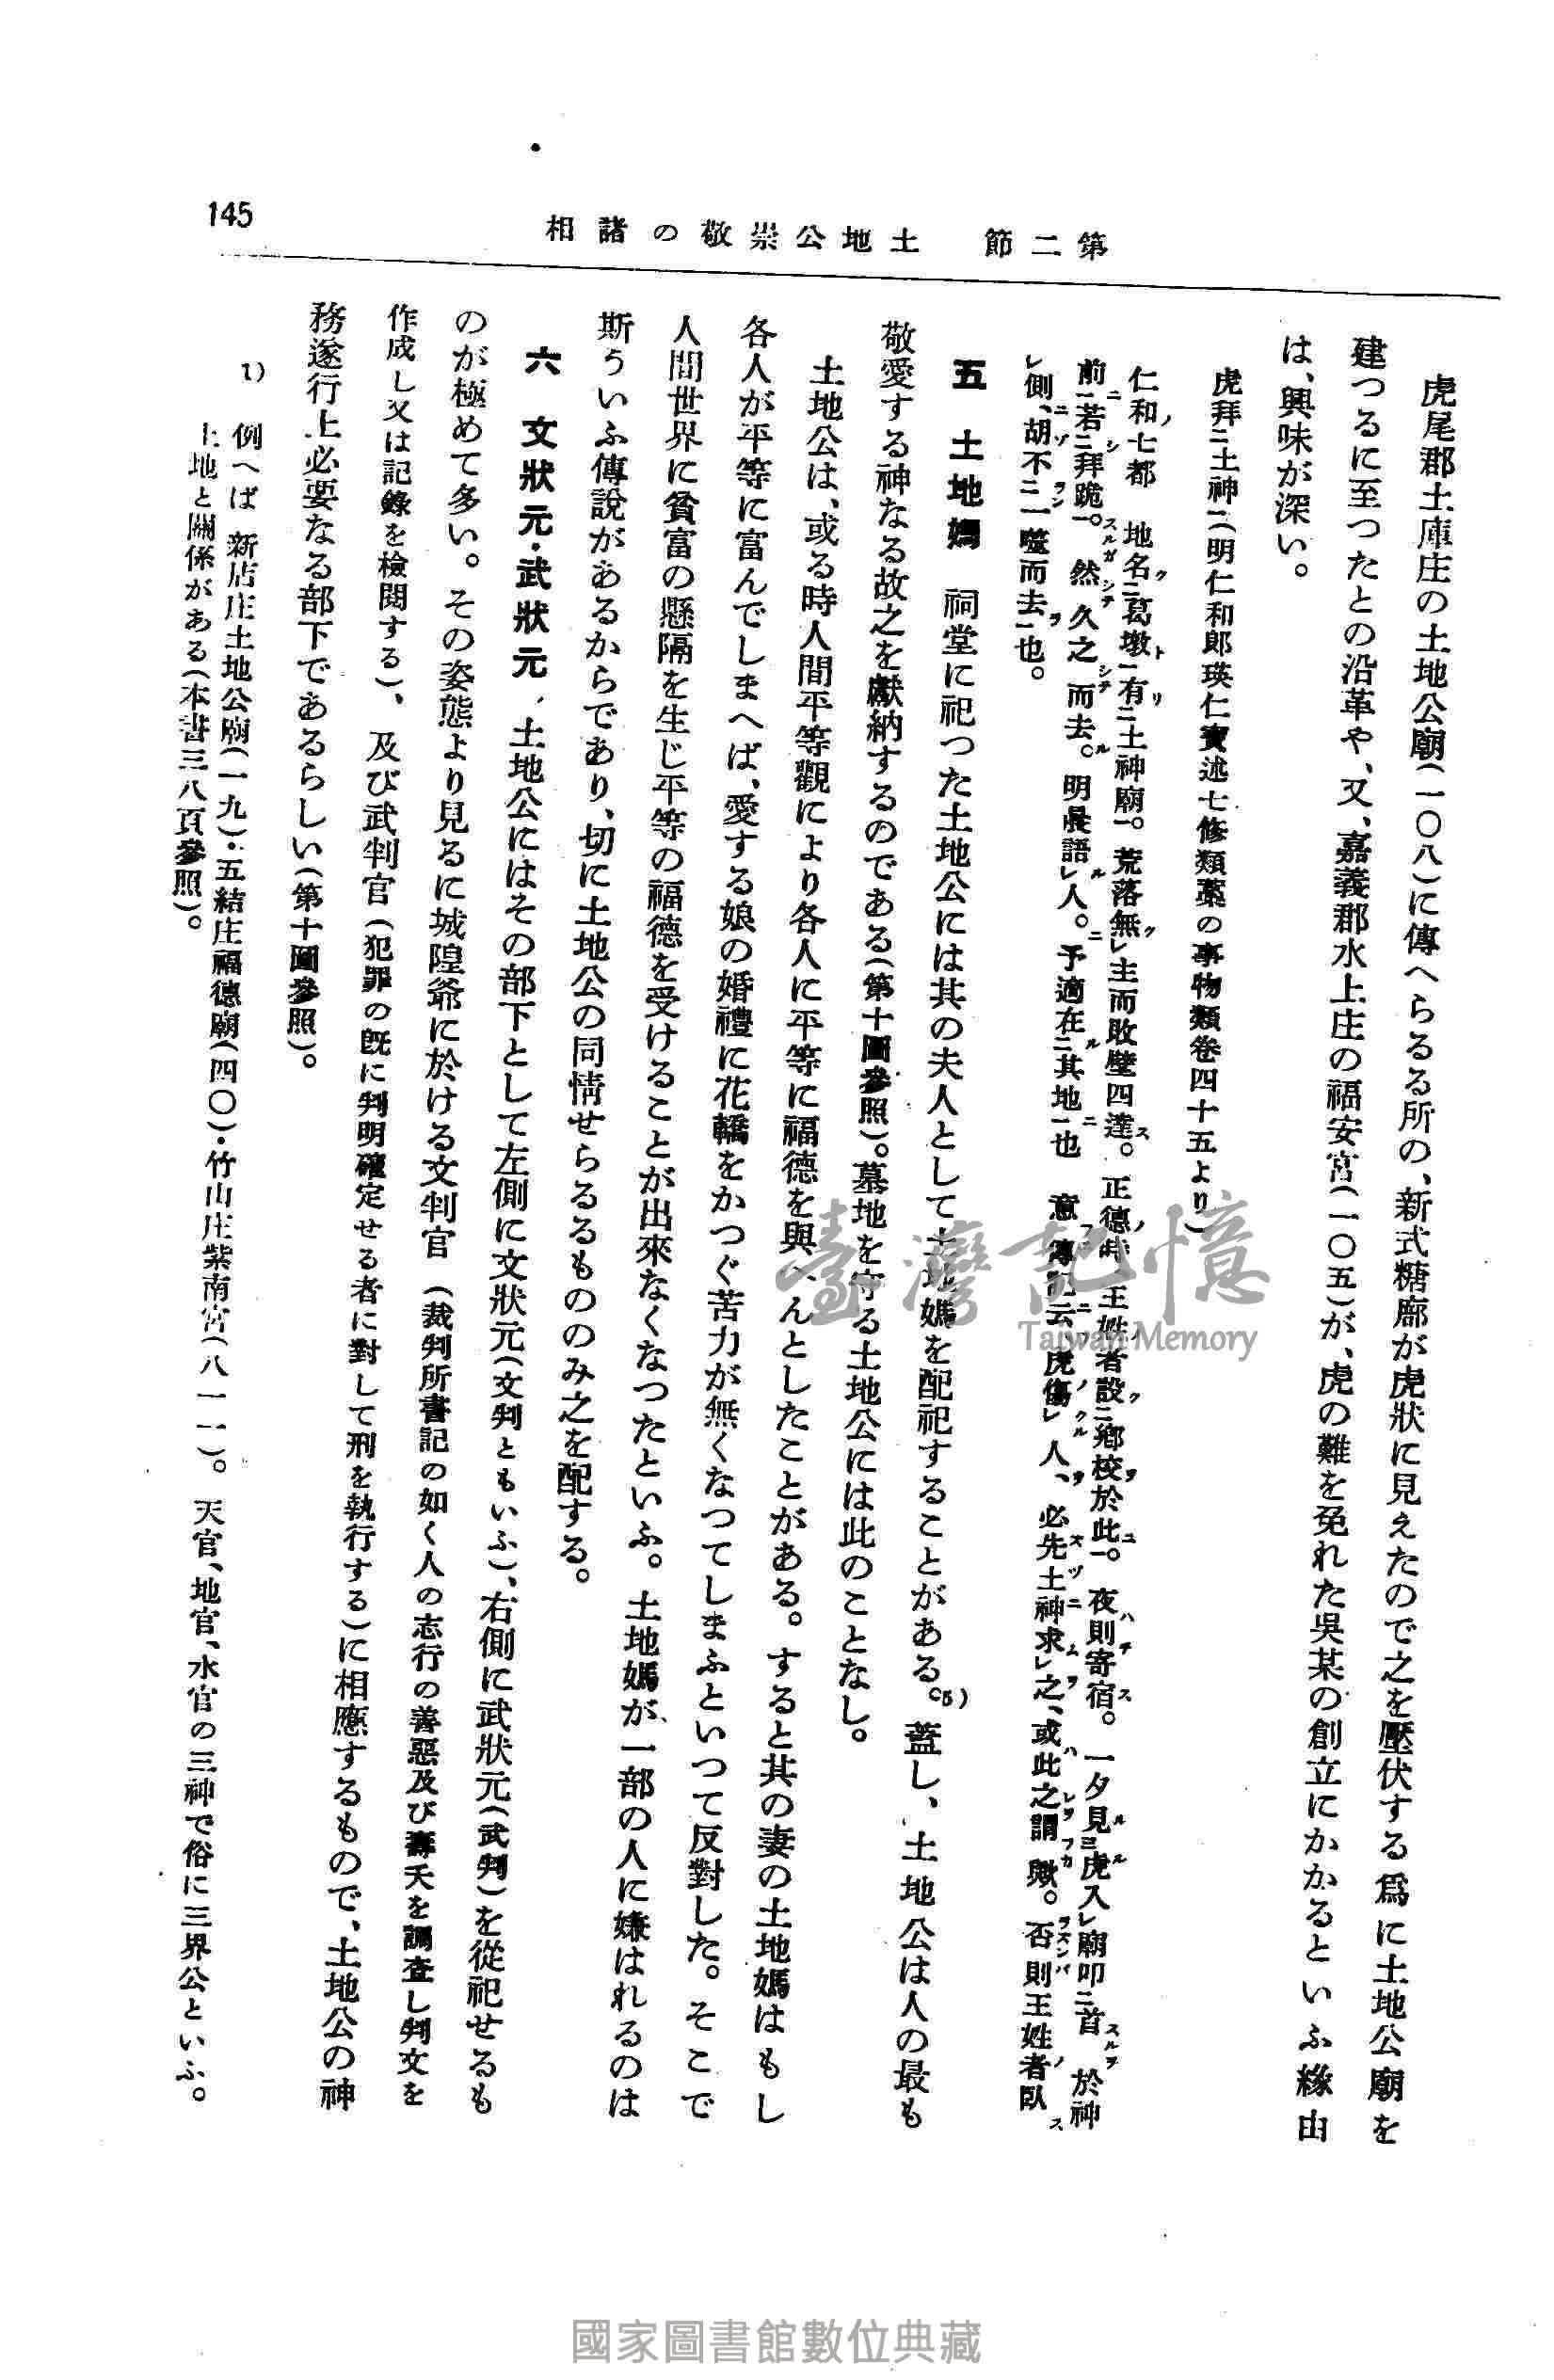 145
第二節 土地公崇敬の諸相
虎尾郡土庫庄の土地公廟(一〇八)に傳へらるる所の、新式糖廍が虎狀に見えたので之を壓伏する爲に土地公廟を
建つるに至つたとの沿革や、又、嘉義郡水上庄の福安宮(一〇五)が、虎の難を免れた吳某の創立にかかるといふ緣由
は、興味が深い。
虎拜二土神一(明仁和郎瑛仁寶述七修類藁の事物類卷四十五より)
仁和七都 地名二葛墩一有二土神廟一。荒落無レ主而敗壁四達。正德時、王姓者設二鄕校於此一。夜則寄宿。一夕見三虎入レ廟叩二首 於神
前一若二拜跪一。然久之 而去。明晨語レ人。予適在二其地一也 意 傳記云、虎傷レ人、必先土神求レ之、或此之謂歟。否則王姓者臥
レ側、胡不二一噬而去一也。
五 土地媽 祠堂に祀つた土地公には其の夫人として土地媽を配祀することがある。5) 蓋し、土地公は人の最も
敬愛する神なる故之を獻納するのである(第十圖參照)。墓地を守る土地公には此のことなし。
土地公は、或る時人間平等觀により各人に平等に福德を與へんとしたことがある。すると其の妻の土地媽はもし
各人が平等に富んでしまへば、愛する娘の婚禮に花轎をかつぐ苦力が無くなつてしまふといつて反對した。そこで
人間世界に貧富の懸隔を生じ平等の福德を受けることが出來なくなつたといふ。土地媽が、一部の人に嫌はれるのは
斯ういふ傳說があるからであり、切に土地公の同情せらるるもののみ之を配する。
六 文狀元・武狀元 土地公にはその部下として左側に文狀元(文判ともいふ)、右側に武狀元(武判)を從祀せるも
のが極めて多い。その姿態より見るに城隍爺に於ける文判官(裁判所書記の如く人の志行の善惡及び壽夭を調查し判文を
作成し又は記錄を檢閱する)、及び武判官(犯罪の既に判明確定せる者に對して刑を執行する)に相應するもので、土地公の神
務遂行上必要なる部下であるらしい(第十圖參照)。
1) 例へば 新店庄土地公廟(一九)・五結庄福德廟(四〇)・竹山庄紫南宮(八一一)。天官、地官、水官の三神で俗に三界公といふ。
土地と關係がある(本書三八頁參照)。
臺灣記憶
Taiwan Memory
國家圖書館數位典藏